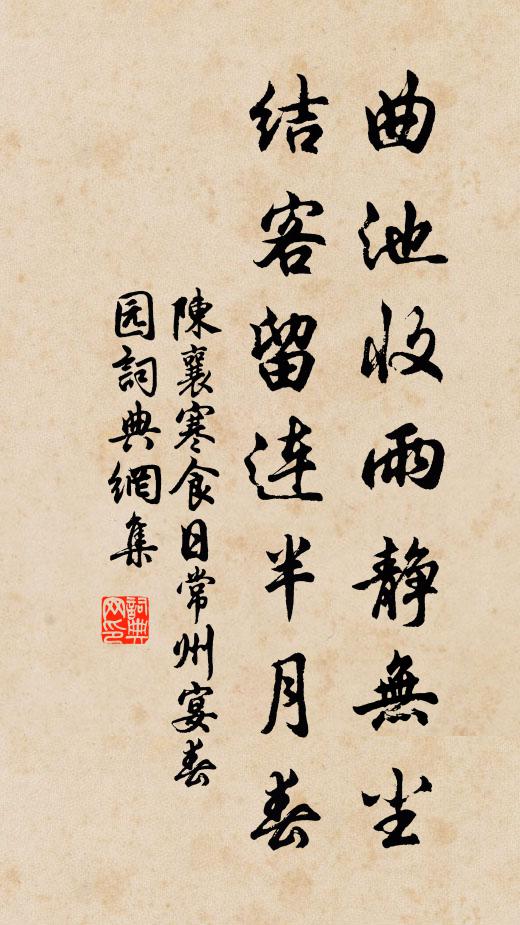 曲池收雨静無尘
结客留连半月春
陳襄寒食日常州宴春
园詞典網集
詞典网印